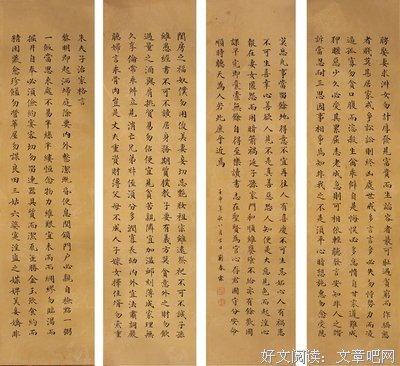 朱夫子治家格言
黎明即起洒掃庭除要內外整潔既昏便息關鎖門戶必親自檢點一粥
一飯當思來處不易半絲半縷恆念物力維艱宜未雨而綢繆勿臨渴而
掘井自奉必須儉約宴客切勿留連器具質而潔瓦缶勝金玉飲食約而
精園蔬愈珍饈勿營華屋勿謀良田三姑六婆實淫盜之媒婢美妾嬌非
閨房之福奴僕勿用俊美妻妾切忌艷妝祖宗雖遠祭祀不可不誠子孫
雖愚經書不可不讀居身務期質樸教子要有義方莫貪意外之財勿飲
過量之酒與肩挑貿易勿佔便宜見貧苦親鄰宜加溫卹刻薄成家理無
久享倫常乖舛立見消亡兄弟叔姪須分多潤寡長幼內外宜法肅辭嚴
聽婦言乖骨肉豈是丈夫重資財薄父母不成人子嫁女擇佳婿勿索重
聘娶媳求淑女勿計厚奩見富貴而生諂容者最可恥遇貧窮而作驕態
者賤莫甚居家戒爭訟訟則終凶處世戒多言言多必失勿恃勢力而凌
逼孤寡勿貪口腹而恣殺生禽乖僻自是悔誤必多頹惰自甘家道難成
狎暱惡少久必受其累屈志老成急則可相依輕聽發言安知非人之譖
訴當忍耐三思因事相爭焉知非我之不是須平心暗想施惠勿念受恩
莫忘凡事當留餘地得意不宜再往人有喜慶不可生妒忌心人有禍患
不可生喜幸心善欲人見不是真善惡恐人知便是大惡見色而起淫心
報在妻女匿怨而用暗箭禍延子孫家門和順雖饔飧不給亦有餘歡國
課早完即囊橐無餘自得至樂讀書志在聖賢為官心存君國守分安命
順時聽天為人若此庶乎近焉
劉春霖
好文阅读：文章吧网